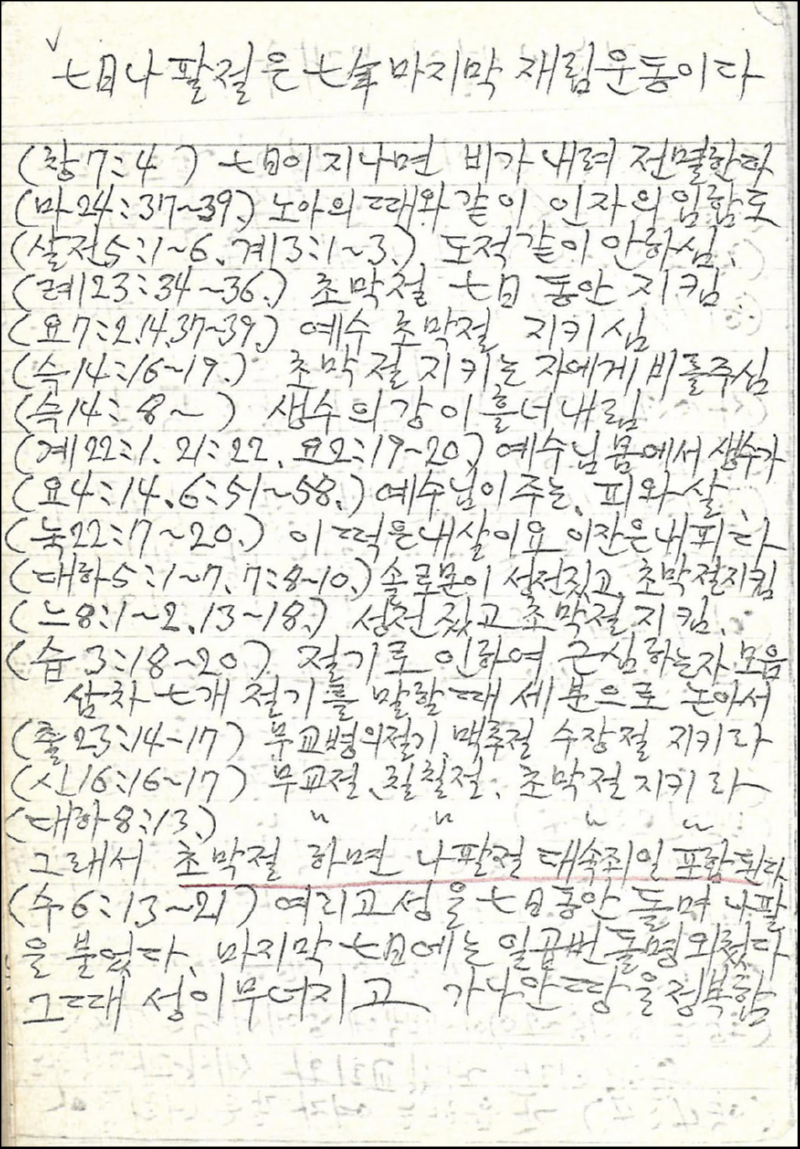 七日나팔절은 七年 마지막 재림운동이다
(창7:4) 七日이 지나면 비가 내려 전멸한다
(마24:37~39.) 노아의 때와 같이 인자의 임함도
(살전5:1~6. 계3:1~3.) 도적같이 안하심.
(레123:34~36.) 초막절 七日 동안 지킴
(요7:2.14.37~39.) 예수 초막절 지키심
(슥14:16~19.) 초막절 지키는 자에게 비를주심
(슥14:8~) 생수의강이흘너내림
(계22:1. 21:22. 요2:19~20.) 예수님몸에서 생수가
(요4:14. 6:51~58.) 예수님이주는. 피와 살.
(눅22:7~20.) 이 떡은내살이요 이잔은내피다
(대하5:1~7. 7:8~10.) 솔로몬이 성전짔고. 초막절지킴
(느8:1~2. 13~18.) 성전 짔고 초막절 지킴.
(습3:18~20) 절기로 인하여 근심하는자 모음
삼차 七개 절기를 말할때 세분으로 논아서
(출23:14-17) 무교병의절기 맥추절 수장절 지키라
(신16:16~17) 무교절. 칠칠절. 초막절지키라
(대하8:13.) 〃 〃 〃 〃
그래서 초막절 하면 나팔절 대속죄일 포함된다
(수6:13~21) 여리고성을 七日동안 돌며 나팔
을 불었다. 마지막 七日에는 일곱번돌명외첬다
그때 성이무너지고 가나안땅을정복함